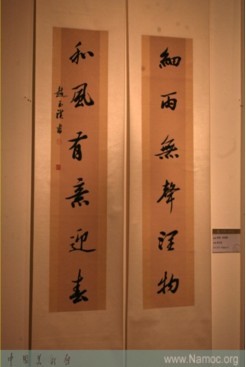 細雨無聲潤物
和風有意迎春
中國美術館
www.Namoc.org